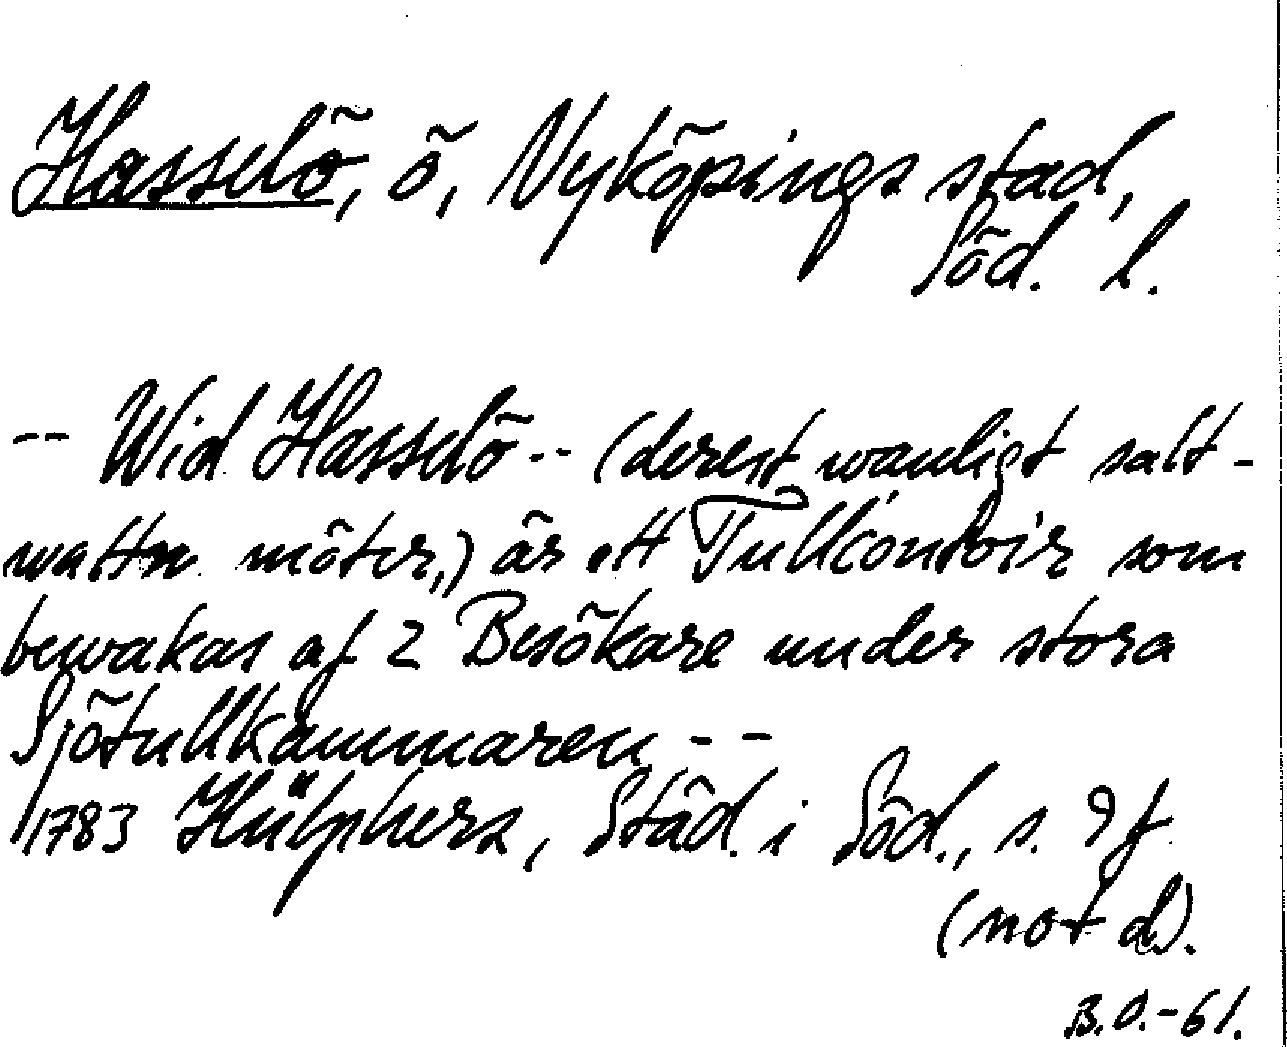 Hasselö, ö, Nyköpings stad,
Söd. l.
-- Wid Hasselö -- (derest wanligt salt-
wattn möter,) är ett Tullcontoir som
bewakas af 2 Besökare under stora
Sjötullkammaren --
1783 Hülphers, Städ. i Söd., s. 9 f.
(not d).
B.O.-61.